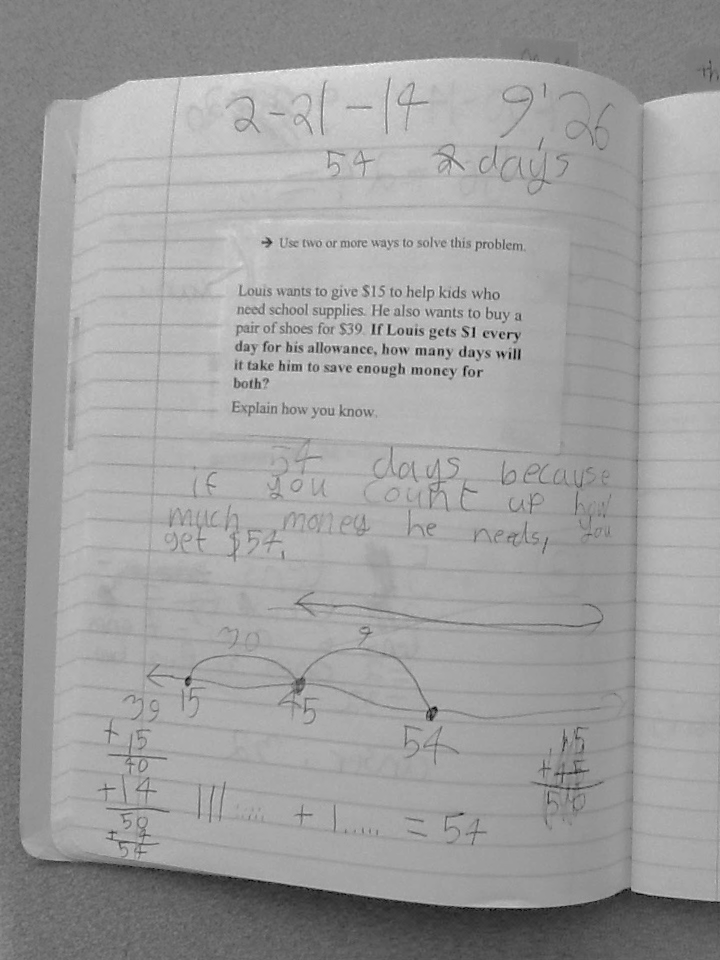 2-21-14 9,26
54 2 days
→ Use two or more ways to solve this problem.
Louis wants to give $15 to help kids who
need school supplies. He also wants to buy a
pair of shoes for $39. If Louis gets $1 every
day for his allowance, how many days will
it take him to save enough money for
both?
Explain how you know.
54 days because
if you count up how
much money he needs, you
get $54.
30 9
15 45 54
39
+15
40
+14
50
+4
54
||| ...... + | ..... = 54
15
+45